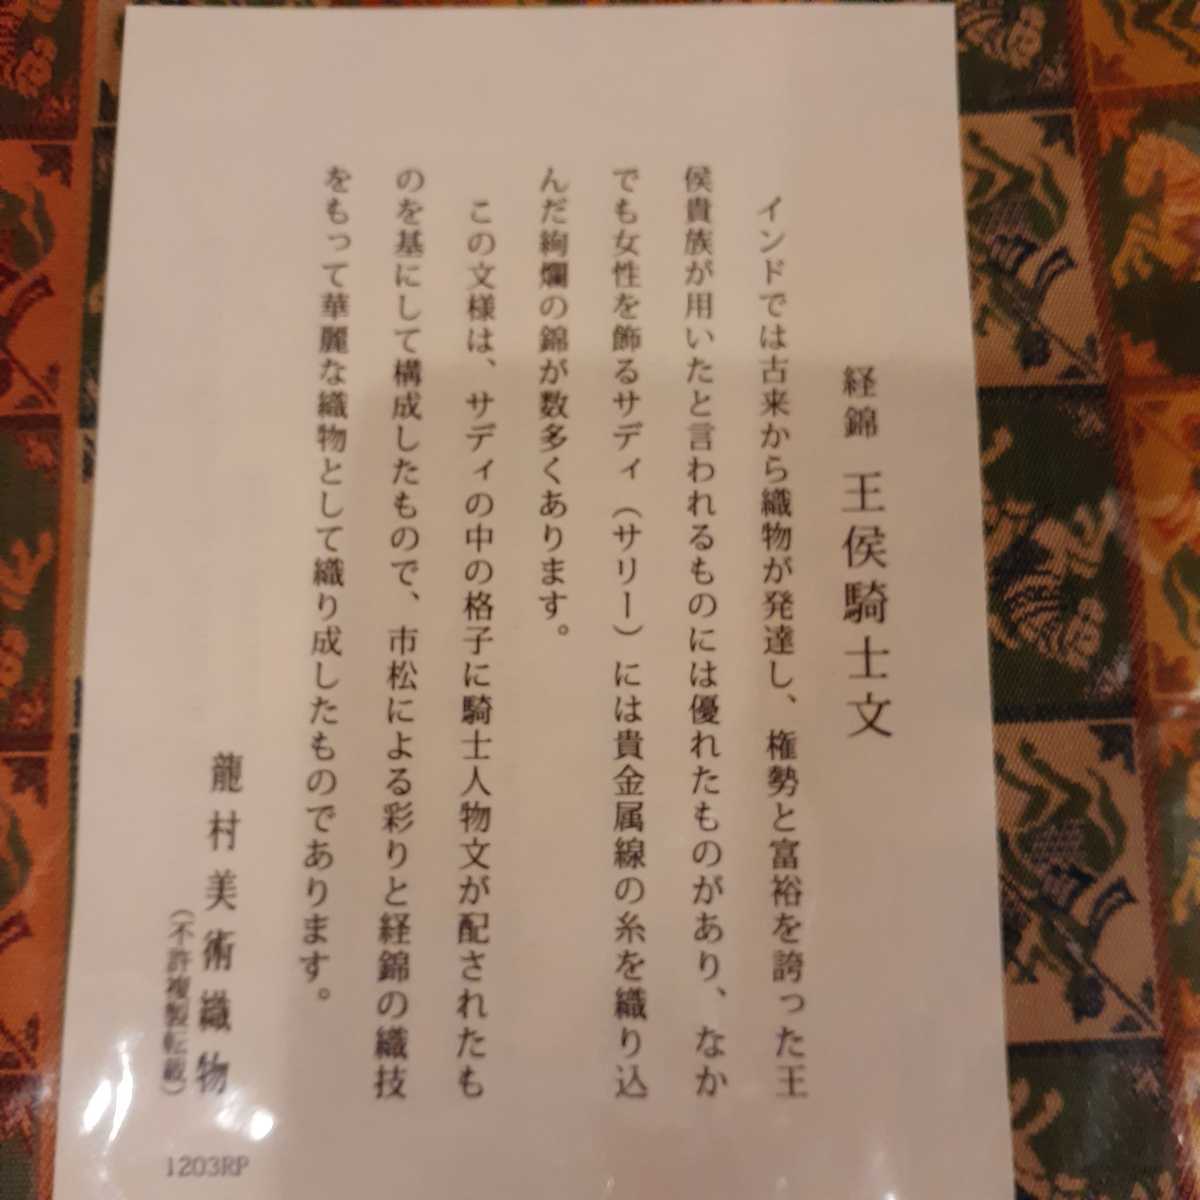 経錦 王侯騎士文
インドでは古来から織物が発達し、権勢と富裕を誇った王
侯貴族が用いたと言われるものには優れたものがあり、なか
でも女性を飾るサディ（サリー）には貴金属線の糸を織り込
んだ絢爛の錦が数多くあります。
この文様は、サディの中の格子に騎士人物文が配されたも
のを基にして構成したもので、市松による彩りと経錦の織技
をもって華麗な織物として織り成したものであります。
龍村美術織物
（不許複製転載）
1203RP